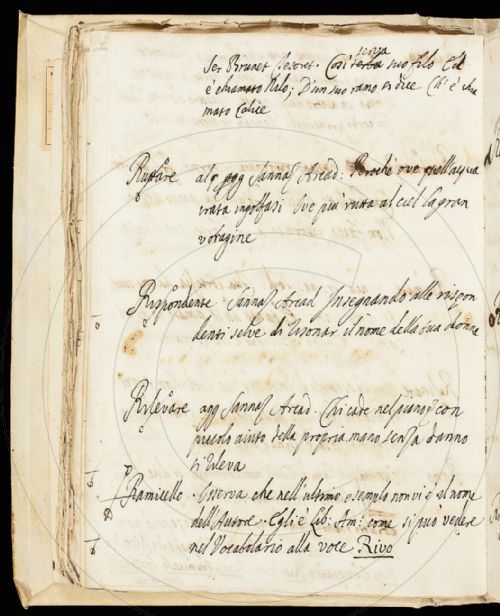 Ser Brunet Tesoret. Così senza suo filo Ed
è chiamato Nilo; D'un suo ramo si dice Ch' è chia
mato Calice
Ruttare Sannaz Arcad: Perochè ove quell'acqua
irata ingolfasi Ove più rutta al ciel la gran
voragine
Rispondente Sannaz Arcad Insegnando alle rispon
denti selve di risonar il nome della sua donna
Rilevare agg Sannaz Arcad. Chi cade nel piano, e con
picciolo aiuto della propria mano senza danno
si rileva
Ramicello. Osserva che nell'ultimo esemplo non vi è il nome
dell'Autore. Egli è Lib: Am: come si può vedere
nel Vocabolario alla voce Rivo